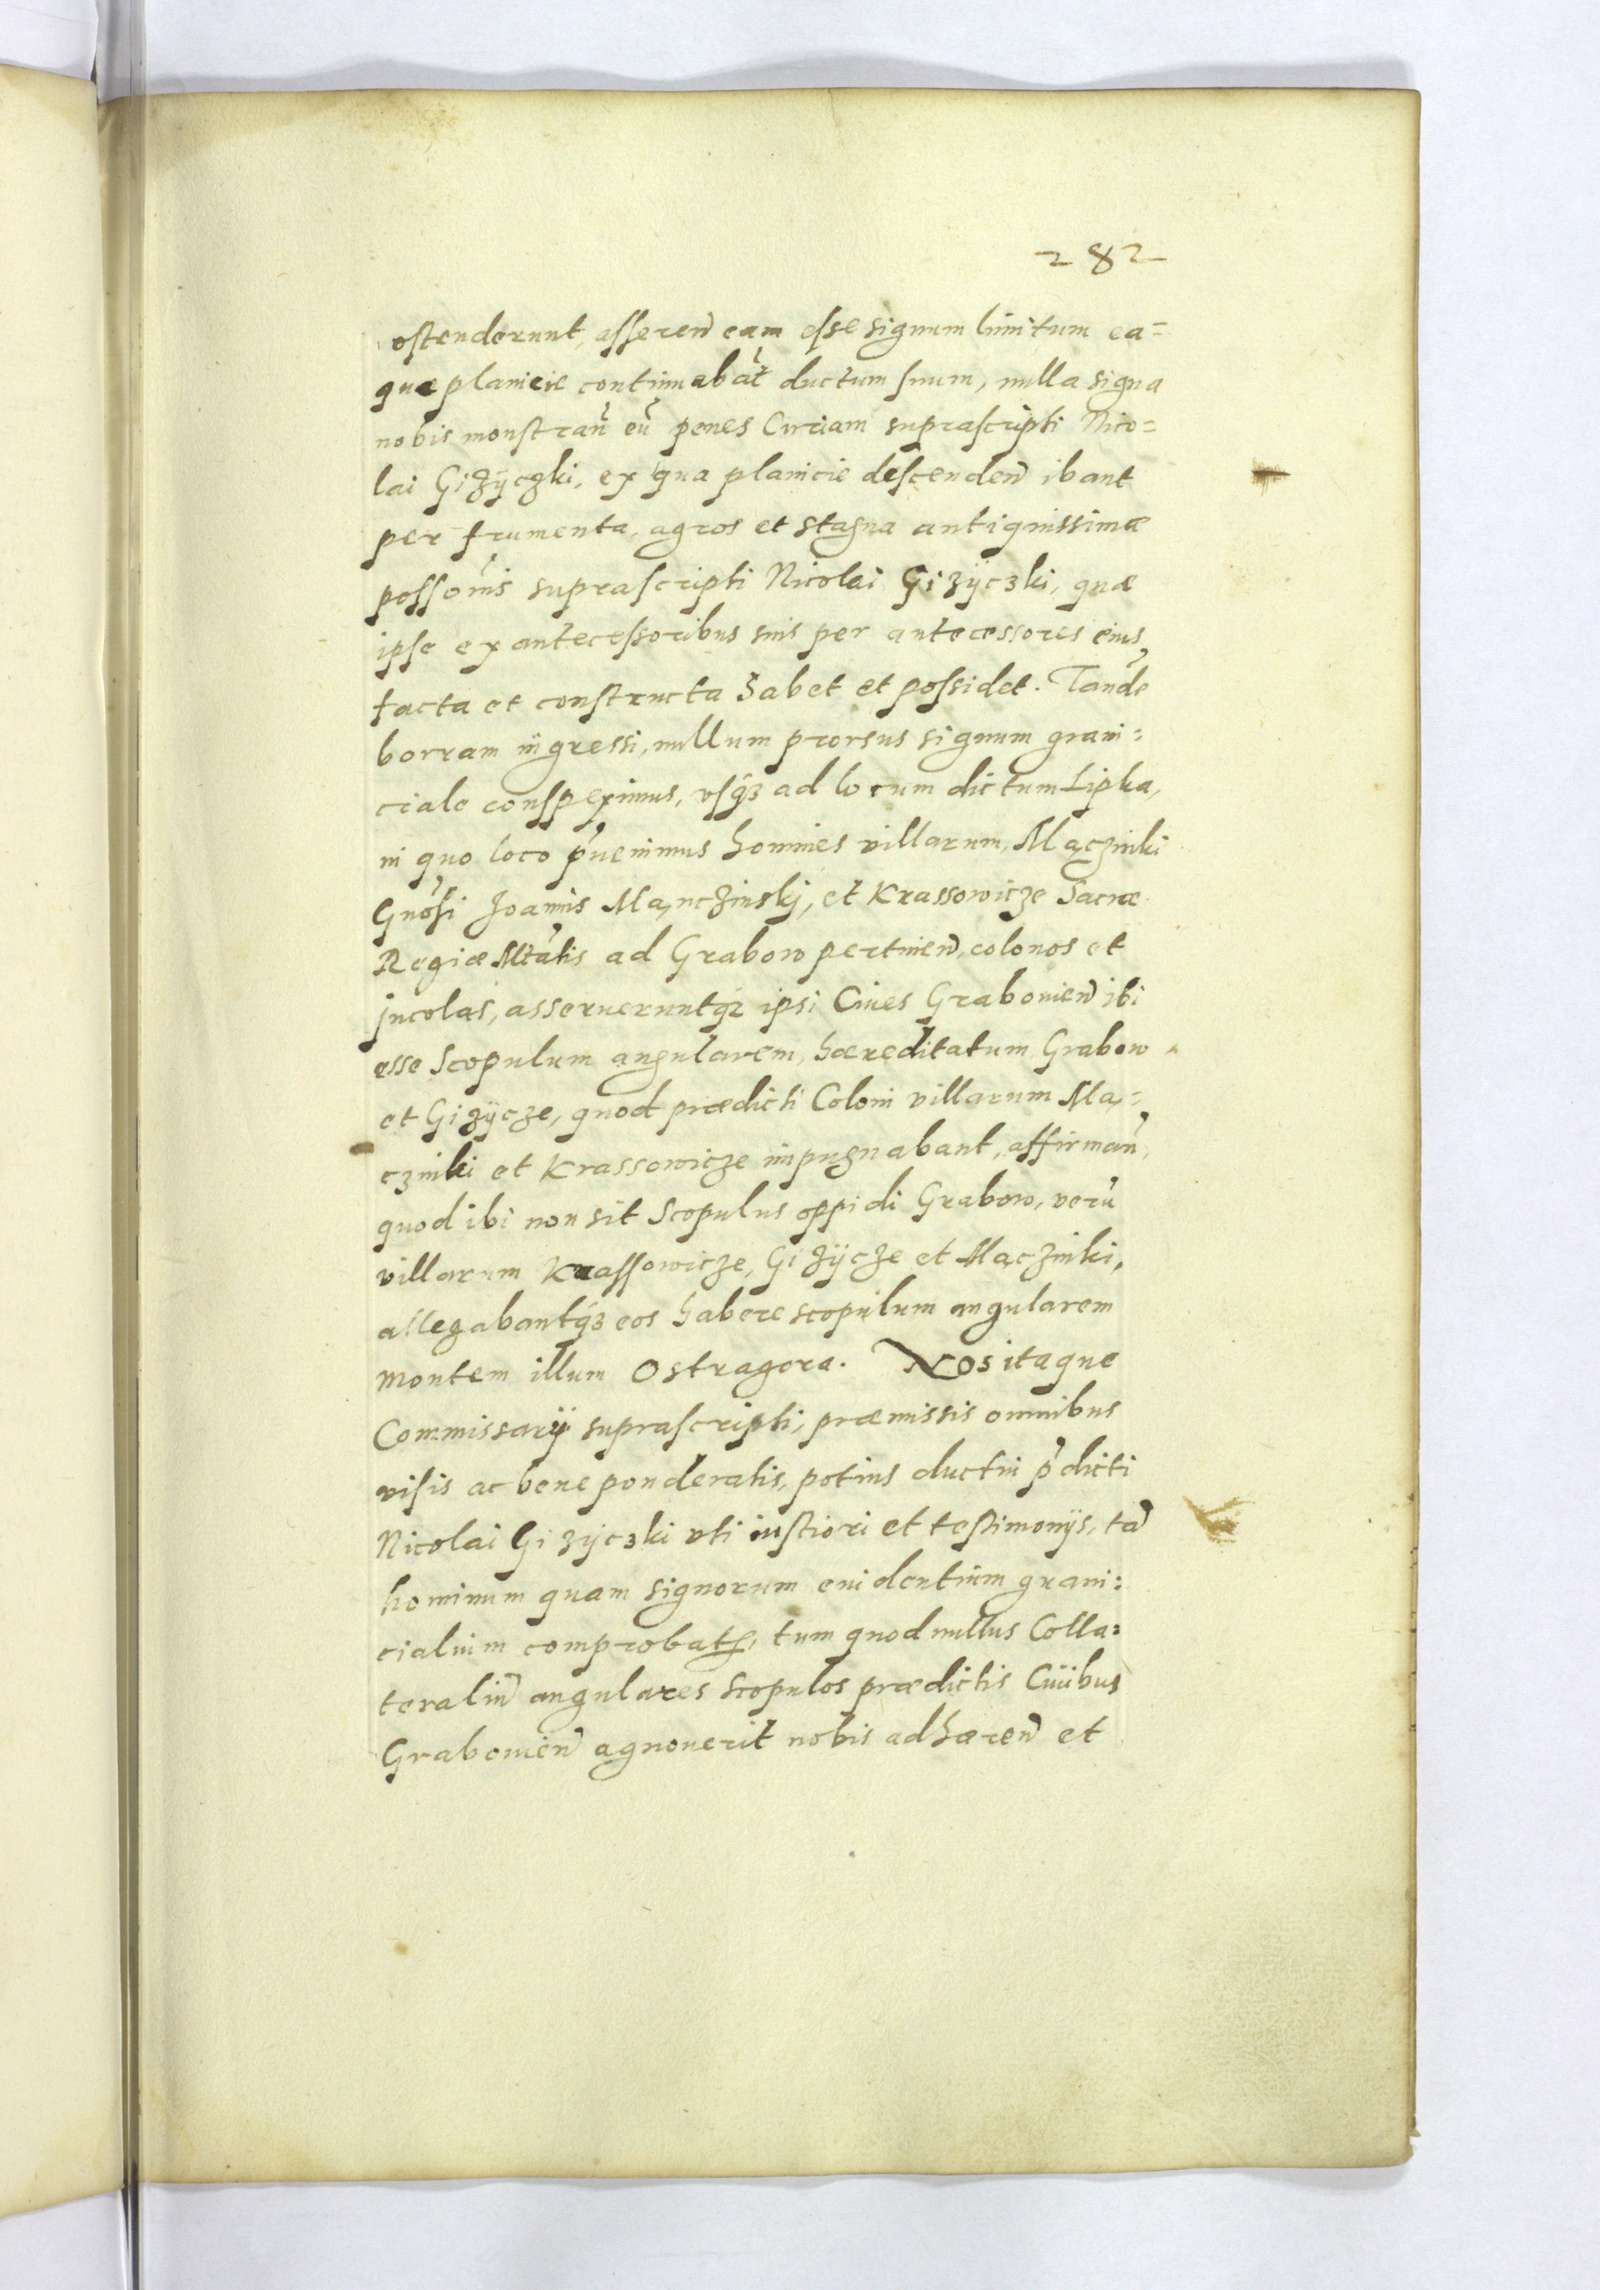 282
ostenderunt, asseren̄ eam esse signum limitum ea=
que planicie continuabāt ductum suum, nulla signa
nobis monstran̄ eū penes Curiam suprascripti Nico=
lai Giżyczki, ex qua planicie descenden̄ ibant
per frumenta, agros et stagna antiquissimæ
possōnis suprascripti Nicolai Giżyczki, quæ
ipse ex antecessoribus suis per antecessores eius
facta et constructa habet et possidet. Tandē
borram ingressi, nullum prorsus signum grani=
ciale conspeximus, vsq3 ad locum dictum Lipka,
in quo loco p̄uenimus homines villarum, Mączinki
Gnōsi Joannis Mąnczinskj, et Krassowicze Sacræ
Regiæ Mtātis ad Grabow pertinen̄, colonos et
jncolas, asserueruntq3 ipsi Ciues Grabouien̄ ibi
esse Scopulum angularem, hæreditatum Grabow
et Giżycze, quod prædicti Coloni villarum Mą=
czinki et Krassowicze impugnabant, affirman̄,
quod ibi non sit Scopulus oppidi Grabow, verū
villarum Krassowicze, Giżycze et Mączinki,
allegabantq3 eos habere scopulum angularem
montem illum Ostragora. Nos itaque
Commissarÿ suprascripti, præmissis omnibus
visis ac bene ponderatis, potius ductui p̄dicti
Nicolai Giżyczki vti iustiori et testimonÿs, tā
hominum quam signorum euidentium grani=
cialium comprobat, tum quod nullus Colla=
teraliū angulares scopulos prædictis Ciuibus
Grabouien̄ agnouerit nobis adhæren̄ et